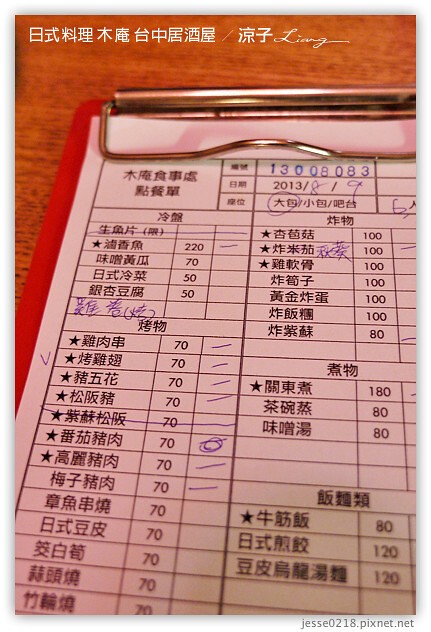 日式料理 木庵 台中居酒屋 / 涼子 Liang
木庵食事處
點餐單
編號 13008083
日期 2013/8/9
座位 大包/小包/吧台
冷盤
生魚片(限)
★滷香魚 220 一
味噌黃瓜 70
日式冷菜 50
銀杏豆腐 50
烤物
★雞肉串 70 一
★烤雞翅 70 一
★豬五花 70 一
★松阪豬 70 一
★紫蘇松阪 70
★番茄豬肉 70
★高麗豬肉 70 一
梅子豬肉 70 一
章魚串燒 70
日式豆皮 70
筊白筍 70
蒜頭燒 70
竹輪燒 70
炸物
★杏苞菇 100
★炸米茄 100
★雞軟骨 100
炸筍子 100
黃金炸蛋 100
炸飯糰 100
炸紫蘇 80
煮物
★關東煮 180
茶碗蒸 80
味噌湯 80
飯麵類
★牛筋飯 80
日式煎餃 120
豆皮烏龍湯麵 120
jesse0218.pixnet.net